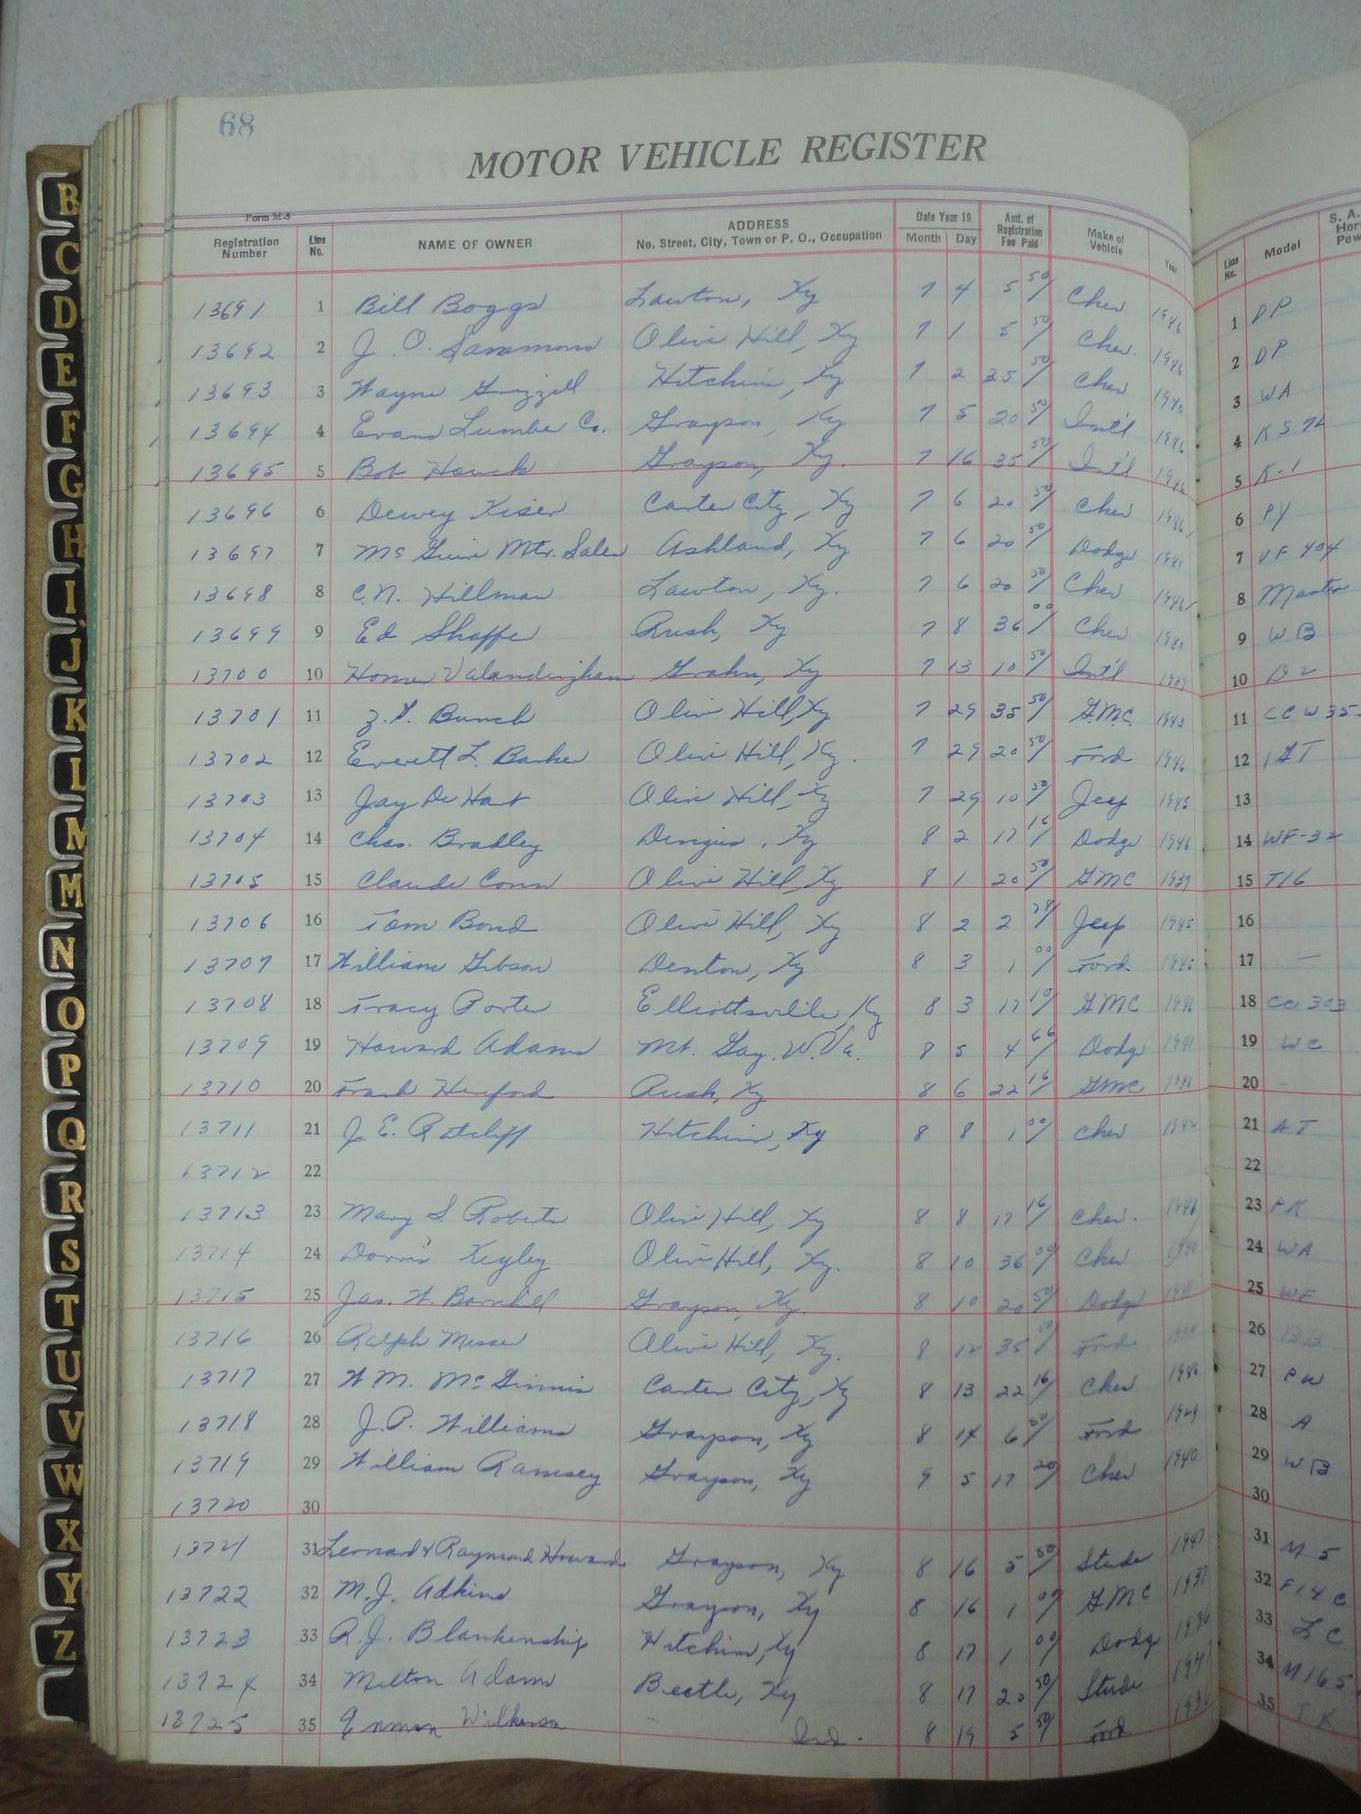 68
MOTOR VEHICLE REGISTER
Form M-5
Registration Number Line No. NAME OF OWNER ADDRESS No. Street, City, Town or P. O., Occupation Date Year 19 Month Day Amt. of Registration Fee Paid Make of Vehicle Year Line No. Model S. A.
13691 1 Bill Boggs Lawton, Ky 7 4 5 50 Chev 1946 1 DP
13692 2 J. O. Sammons Olive Hill, Ky 7 1 5 50 Chev. 1946 2 DP
13693 3 Wayne Grizzell Hitchins, Ky 7 2 35 50 Chev 3 WA
13694 4 Evans Lumber Co. Grayson, Ky 7 5 20 50 Int'l 1946 4
13695 5 Bob Houck Grayson, Ky. 7 16 35 50 Int'l 5 K-1
13696 6 Dewey Kiser Carter City, Ky 7 6 20 50 Chev 1946 6 PY
13697 7 Mc Guire Mtr. Sales Ashland, Ky 7 6 20 50 Dodge 7
13698 8 C.N. Hillman Lawton, Ky. 7 6 20 50 Chev 8 Master
13699 9 Ed Shaffer Rush, Ky 7 8 36 00 Chev 9 WB
13700 10 Homer Valandingham Grahn, Ky 7 13 10 50 Int'l 10 D2
13701 11 Bunch Olive Hill, Ky 7 29 35 50 G.M.C. 11
13702 12 Everett L. Barker Olive Hill, Ky. 7 29 20 50 Ford 1946 12
13703 13 Jay De Hart Olive Hill, Ky 7 29 10 50 Jeep 1945 13
13704 14 Chas. Bradley Ky 8 2 17 16 Dodge 1946 14 WF-32
13705 15 Claude Conn Olive Hill, Ky 8 1 20 50 GMC 1937 15 T16
13706 16 Tom Bond Olive Hill, Ky 8 2 2 Jeep 1945 16
13707 17 William Gibson Denton, Ky 8 3 1 00 Ford 17 —
13708 18 Tracy Porter Elliottsville, Ky 8 3 17 GMC 18 CC 303
13709 19 Howard Adams Mt. Gay, W. Va. 8 5 4 66 Dodge 1941 19 WC
13710 20 Frank Ky 8 6 22 16 GMC 20
13711 21 J. E. Ratcliff Hitchins, Ky 8 8 1 00 Chev 21 AT
13712 22 22
13713 23 Mary S. Roberts Olive Hill, Ky 8 8 17 16 Chev. 1946 23 PK
13714 24 Dorris Kegley Olive Hill, Ky. 8 10 36 00 Chev 24 WA
13715 25 Jas. W. Barnhill Grayson, Ky. 8 10 20 50 Dodge 25 WF
13716 26 Ralph Messer Olive Hill, Ky. 8 12 35 50 Ford 26
13717 27 W M. Mc Ginnis Carter City, Ky 8 13 22 16 Chev 1946 27 PW
13718 28 J. P. Williams Grayson, Ky 8 14 6 Ford 1929 28 A
13719 29 William Ramsey Grayson, Ky 9 5 17 20 Chev 1940 29 WB
13720 30 30
13721 31 Leonard & Raymond Howard Grayson, Ky 8 16 5 50 Stude 1947 31 M 5
13722 32 M. J. Adkins Grayson, Ky 8 16 1 00 GMC 1937 32 F14C
13723 33 R. J. Blankenship Hitchins, Ky 8 17 1 00 Dodge 1936 33 LC
13724 34 Milton Adams Beetle, Ky 8 17 20 50 Stude 1947 34 M165
13725 35 Wilkerson Ind. 8 19 5 50 Ford 1936 35 TK
B
C
D
E
F
G
H
I
J
K
L
M
M
N
O
P
Q
R
S
T
U
V
W
X
Y
Z